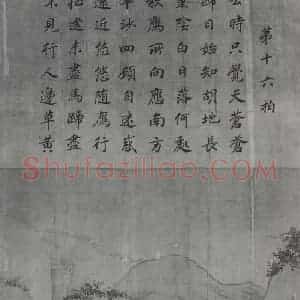 第十六拍
去時只覺天蒼蒼
歸日始知胡地長
重陰白日落何處
秋鴈所向應南方
平沙四顧自迷惑
遠近悠悠隨鴈行
征途未盡馬蹄盡
不見行人邊草黃
Shufaziliao.com